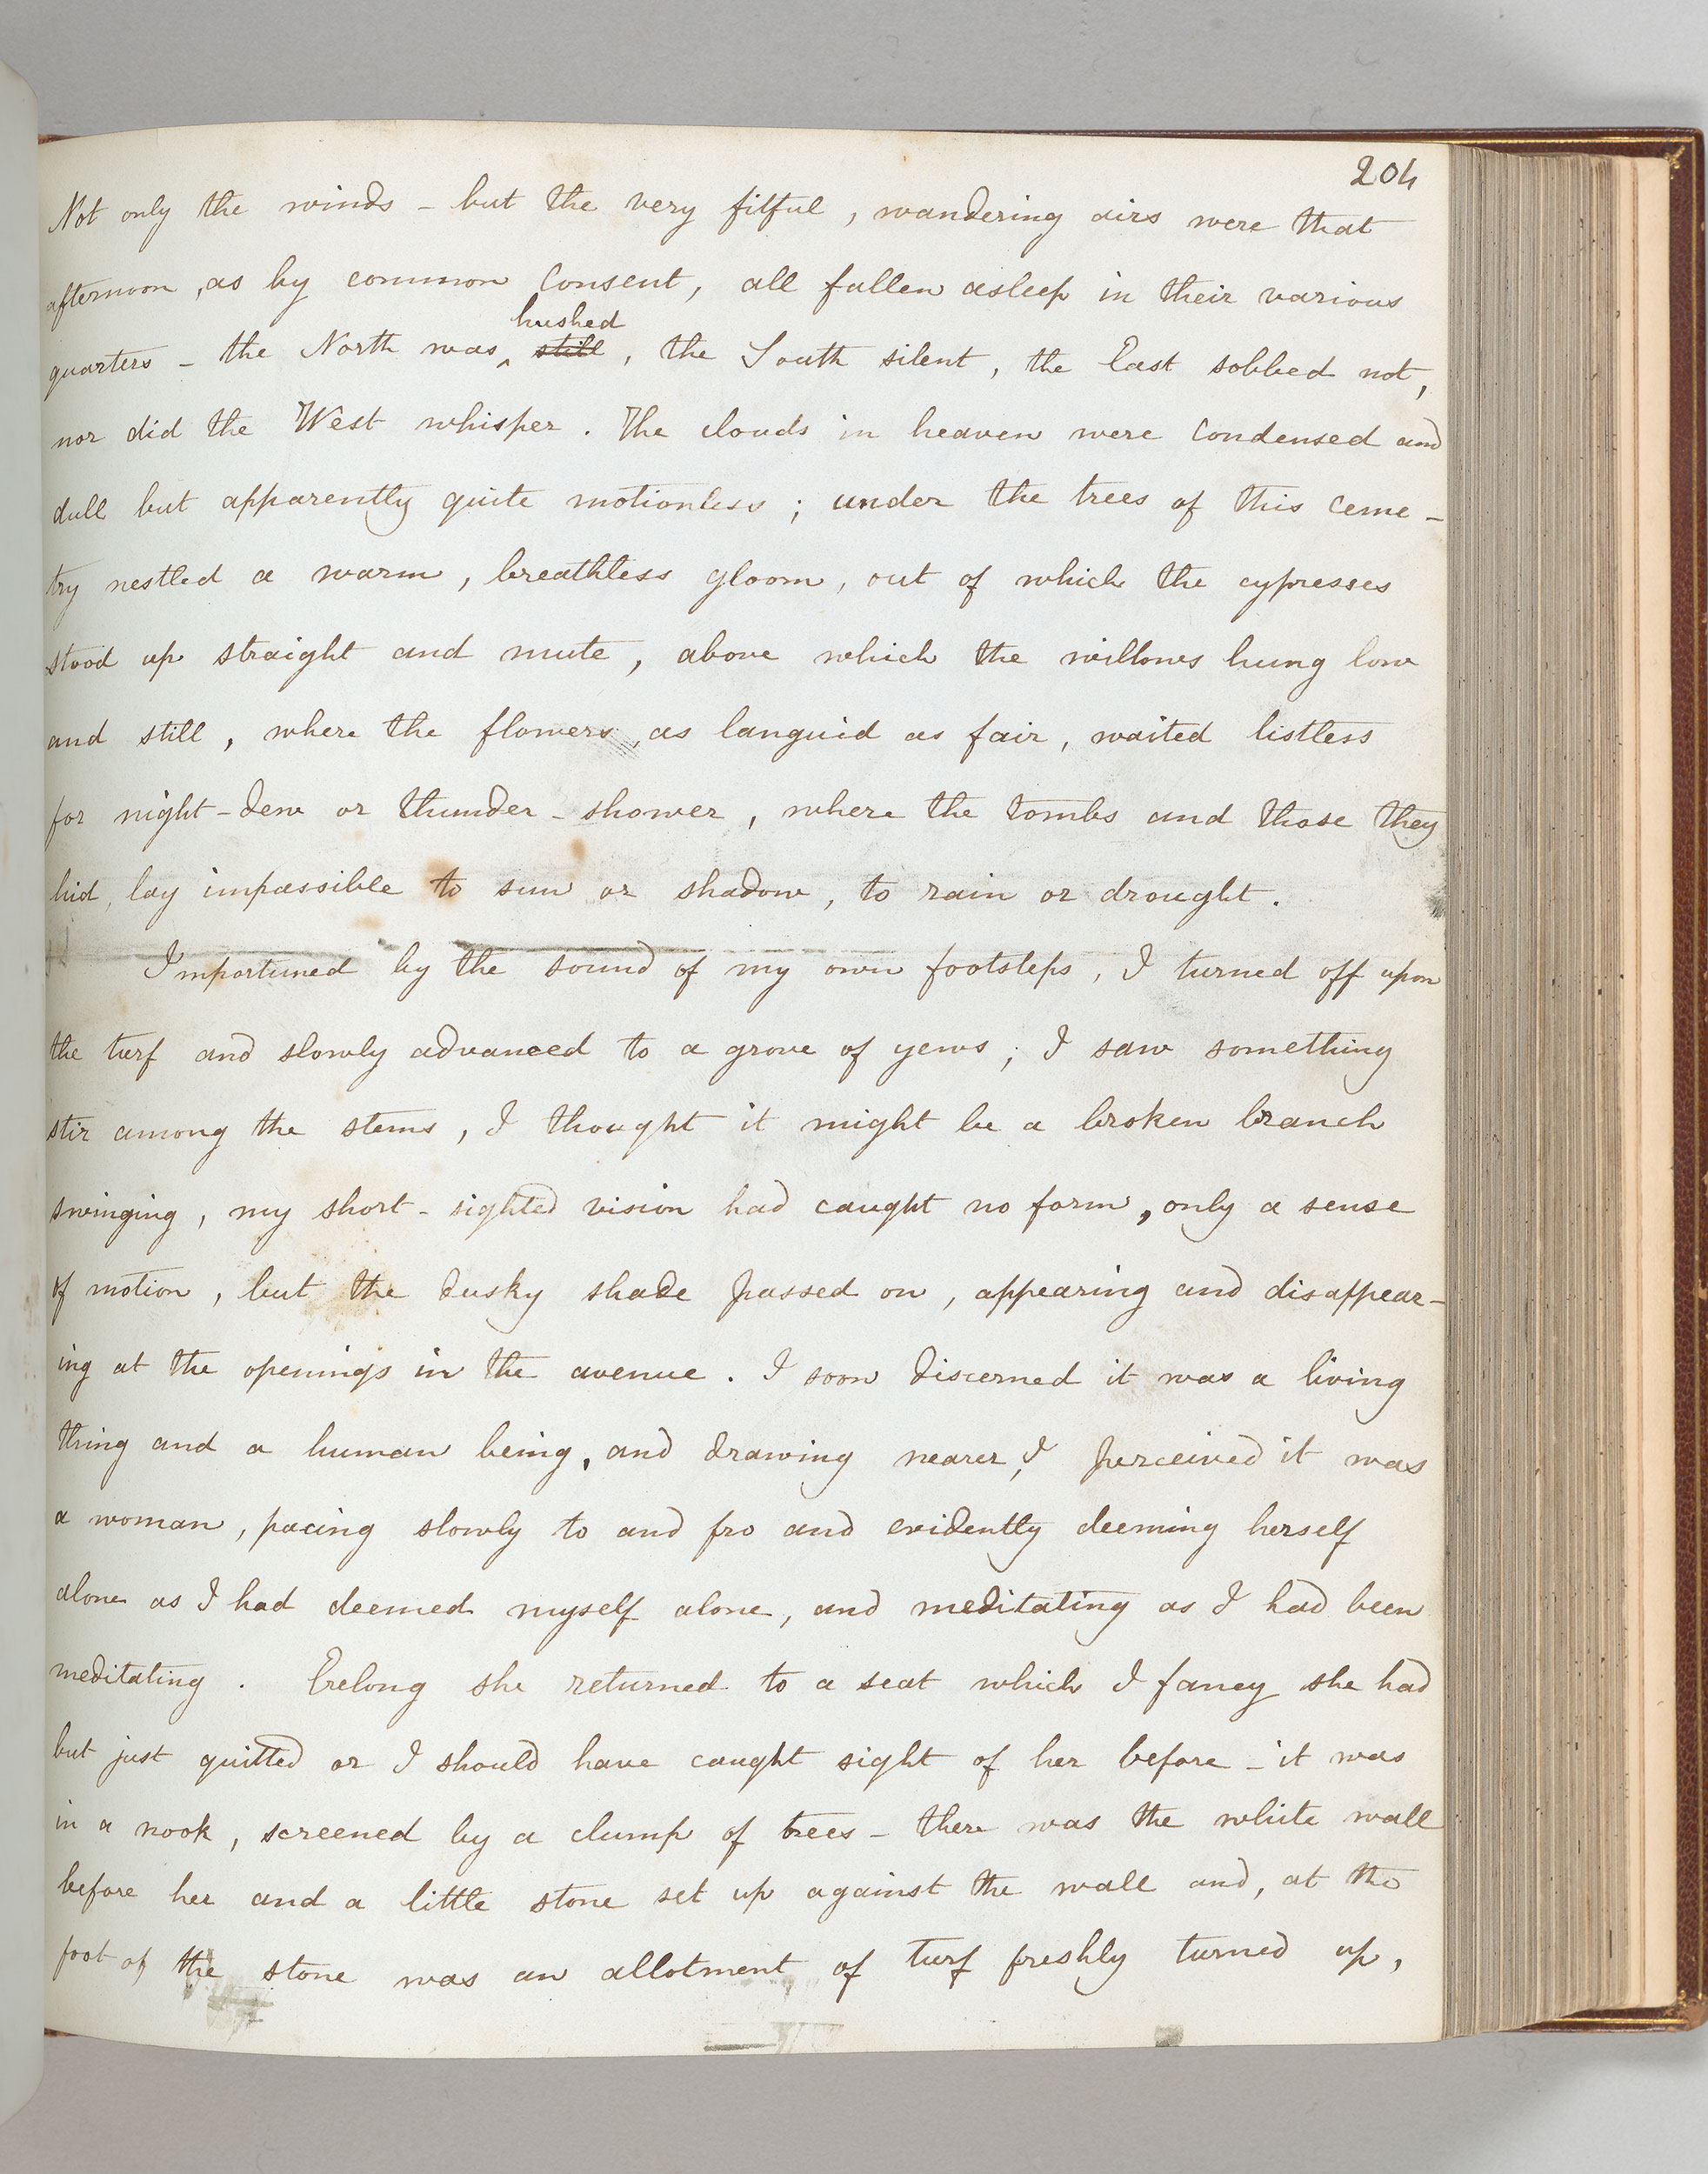 204
Not only the winds - but the very fitful, wandering airs were that
afternoon, as by common consent, all fallen asleep in their various
hushed
quarters - the North was ^ still, the South silent, the East sobbed not,
nor did the West whisper. The clouds in heaven were condensed and
dull but apparently quite motionless; under the trees of this ceme-
try nestled a warm, breathless gloom, out of which the cypresses
stood up straight and mute, above which the willows hung low
and still, where the flowers, as languid as fair, waited listless
for night-dew or thunder-shower, where the tombs and those they
hid, lay impassible to sun or shadow, to rain or drought.
Importuned by the sound of my own footsteps, I turned off upon
the turf and slowly advanced to a grove of yews; I saw something
stir among the stems, I thought it might be a broken branch
swinging, my short-sighted vision had caught no form, only a sense
of motion, but the dusky shade passed on, appearing and disappear-
ing at the openings in the avenue. I soon discerned it was a living
thing and a human being, and drawing nearer, I perceived it was
a woman, pacing slowly to and fro and evidently deeming herself
alone as I had deemed myself alone, and meditating as I had been
meditating. Erelong she returned to a seat which I fancy she had
but just quitted or I should have caught sight of her before - it was
in a nook, screened by a clump of trees - there was the white wall
before her and a little stone set up against the wall and, at the
foot of the stone was an allotment of turf freshly turned up,